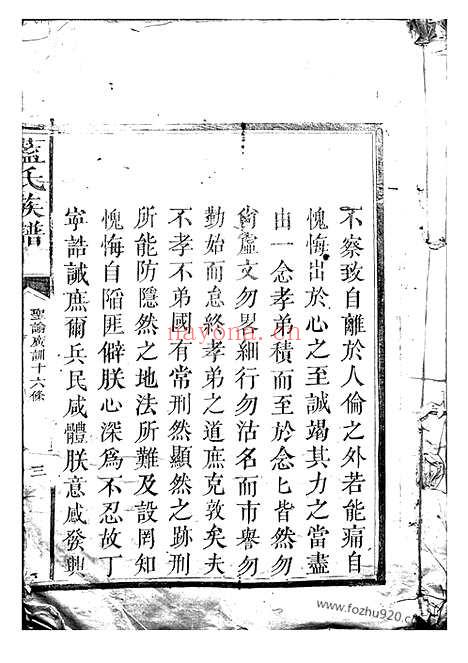 不察致自離於人倫之外若能痛自
愧悔出於心之至誠竭其力之當盡
由一念孝弟積而至於念匕皆然勿
尙虛文勿畧細行勿沽名而市譽勿
勤始而怠終孝弟之道庶克敦矣夫
不孝不弟國有常刑然顯然之跡刑
所能防隱然之地法所難及設罔知
愧悔自陷匪僻朕心深爲不忍故丁
寧誥誡庶爾兵民咸體朕意感發興
藍氏族譜
聖諭廣訓十六條
三
nayona.cn
www.fozhu920.com